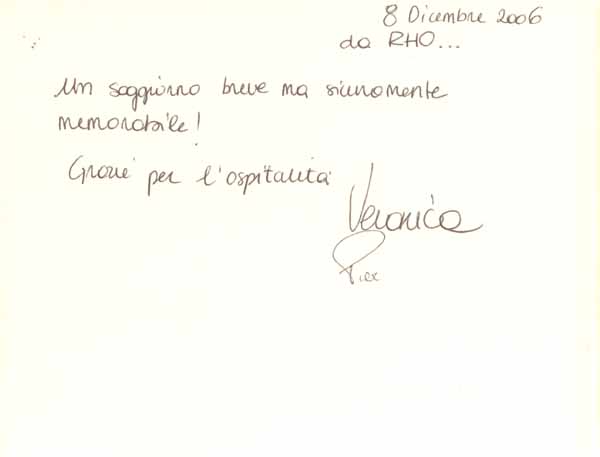 8 Dicembre 2006
da RHO...
Un soggiorno breve ma sicuramente
memorabile!
Grazie per l'ospitalità
Veronica